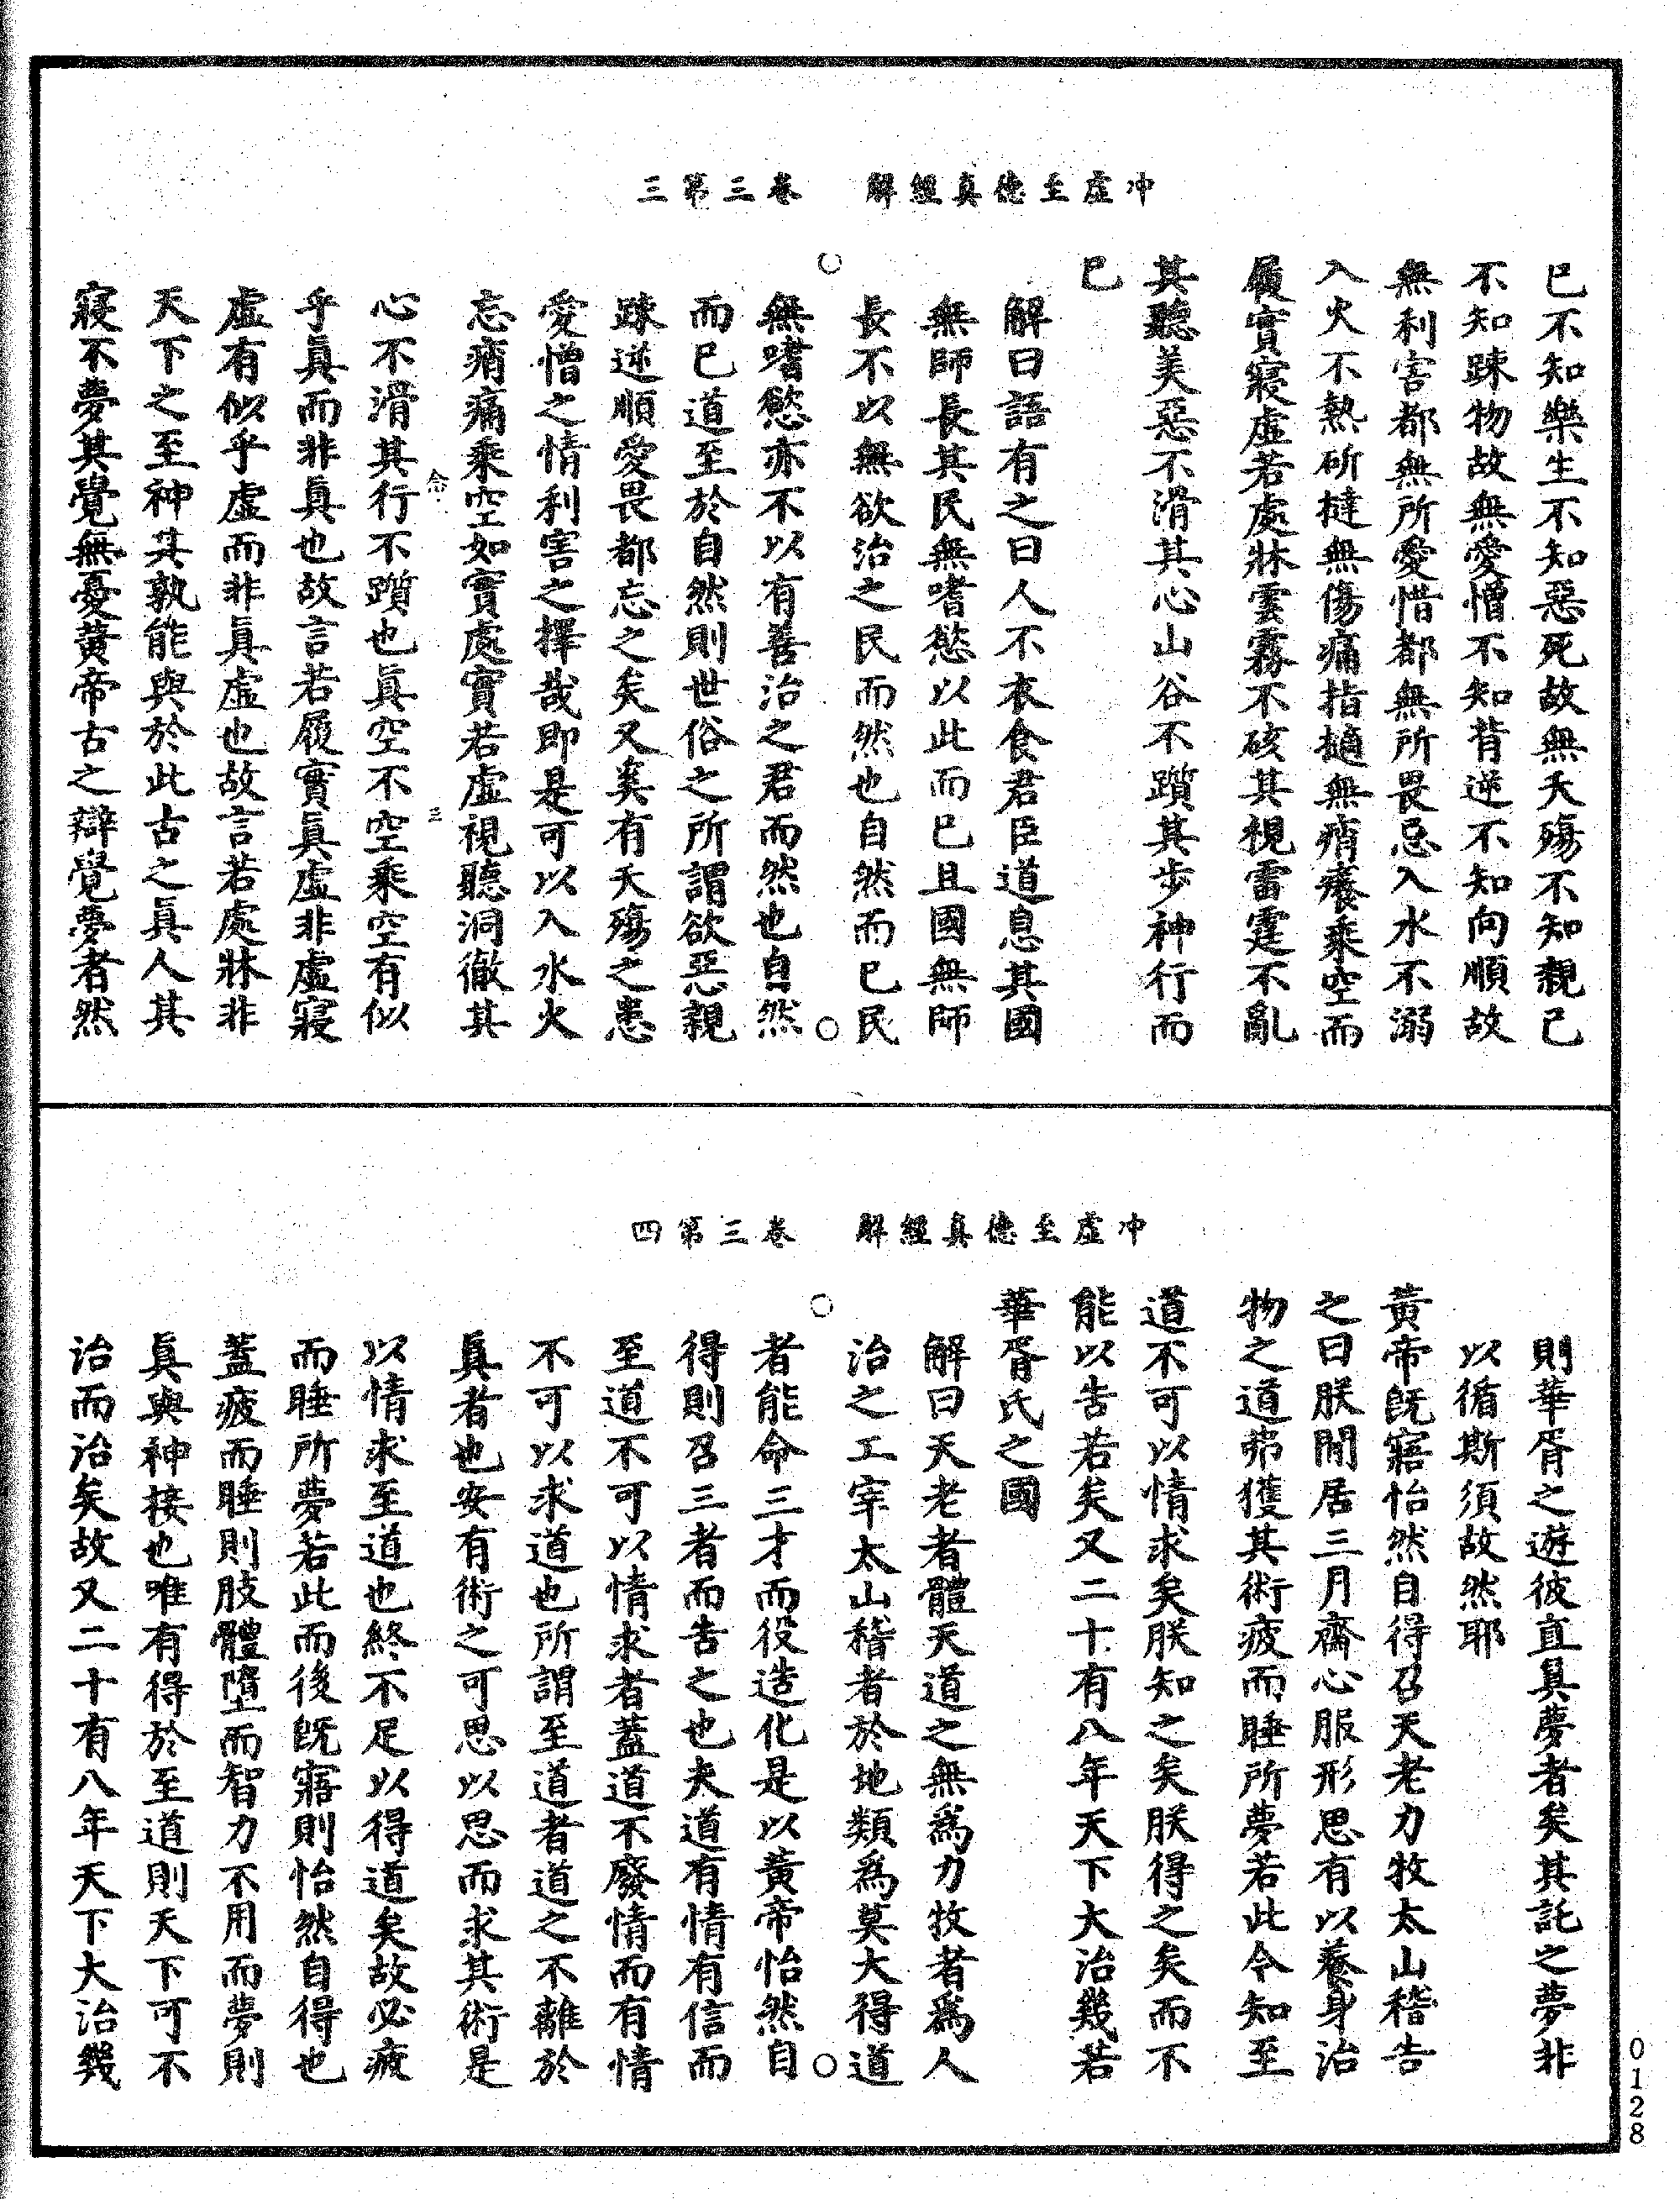 冲虛至德真經解　卷三第三
已不知樂生不知惡死故無夭殤不知親己
不知踈物故無愛憎不知背逆不知向順故
無利害都無所愛惜都無所畏忌入水不溺
入火不熱斫撻無傷痛指擿無痟癢乘空而
履實寢虛若處牀雲霧不硋其視雷霆不亂
其聽美惡不滑其心山谷不躓其步神行而
已
解曰語有之曰人不衣食君臣道息其國
無師長其民無嗜慾以此而已且國無師
長不以無欲治之民而然也自然而已民
無嗜慾亦不以有善治之君而然也自然
而已道至於自然則世俗之所謂欲惡親
踈逆順愛畏都忘之矣又奚有夭殤之患
愛憎之情利害之擇哉即是可以入水火
忘痟痛乘空如實處實若虛視聽洞徹其
念　三
心不滑其行不躓也眞空不空乘空有似
乎眞而非眞也故言若履實眞虛非虛寢
虛有似乎虛而非眞虛也故言若處牀非
天下之至神其孰能與於此古之眞人其
寢不夢其覺無憂黃帝古之辯覺夢者然
冲虛至德真經解　卷三第四
則華胥之遊彼直具夢者矣其託之夢非
以循斯須故然耶
黃帝旣寤怡然自得召天老力牧太山稽告
之曰朕閒居三月齋心服形思有以養身治
物之道弗獲其術疲而睡所夢若此今知至
道不可以情求矣朕知之矣朕得之矣而不
能以告若矣又二十有八年天下大治幾若
華胥氏之國
解曰天老者體天道之無爲力牧者爲人
治之工宰太山稽者於地類爲莫大得道
者能命三才而役造化是以黃帝怡然自
得則召三者而告之也夫道有情有信而
至道不可以情求者蓋道不廢情而有情
不可以求道也所謂至道者道之不離於
眞者也安有術之可思以思而求其術是
以情求至道也終不足以得道矣故必疲
而睡所夢若此而後旣寤則怡然自得也
蓋疲而睡則肢體墮而智力不用而夢則
眞與神接也唯有得於至道則天下可不
治而治矣故又二十有八年天下大治幾
0128